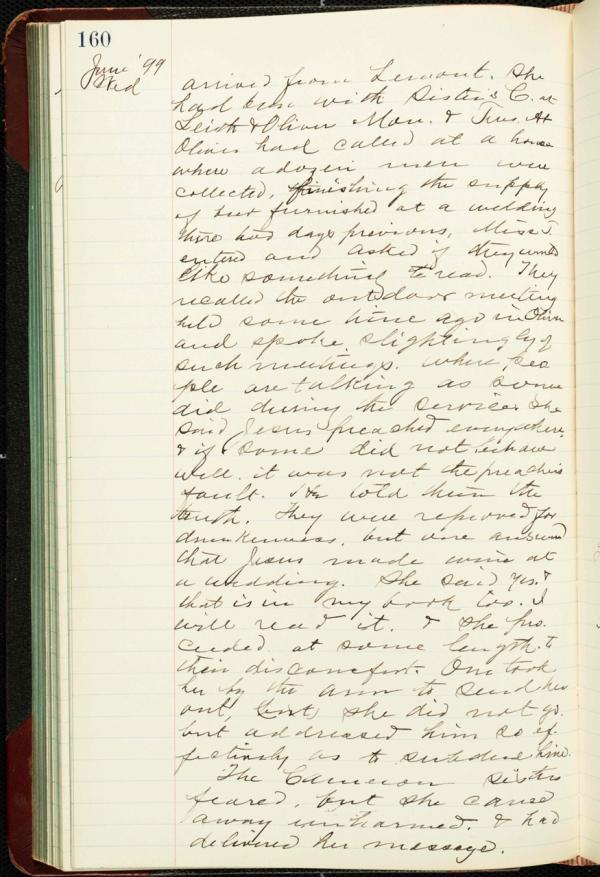 160
June '99
Wed
arrived from Lemont. She
had been with Sisters C. at
Leith & Oliver Mon. & Tues. At
Oliver had called at a house
where a dozen men were
collected, finishing the supply
of beer furnished at a wedding
there two days previous, Miss J.
entered and asked if they would
like something to read. They
recalled the outdoor meeting
held some time ago in Oliver
and spoke slightingly of
such meetings. where peo
ple are talking as some
did during the service. She
said, Jesus preached everywhere,
& if some did not behave
well, it was not the preachers
fault. He told them the
truth. They were reproved for
drunkenness, but one answered
that Jesus made wine at
a wedding. She said yes. &
that is in my book too. I
will read it. & she pro
ceeded at some length. to
their discomfort. One took
her by the arm to send her
out, but she did not go.
but addressed him so ef-
fectively as to subdue him.
The Cameron sisters
feared, but she came
away unharmed. & had
delivered her message.